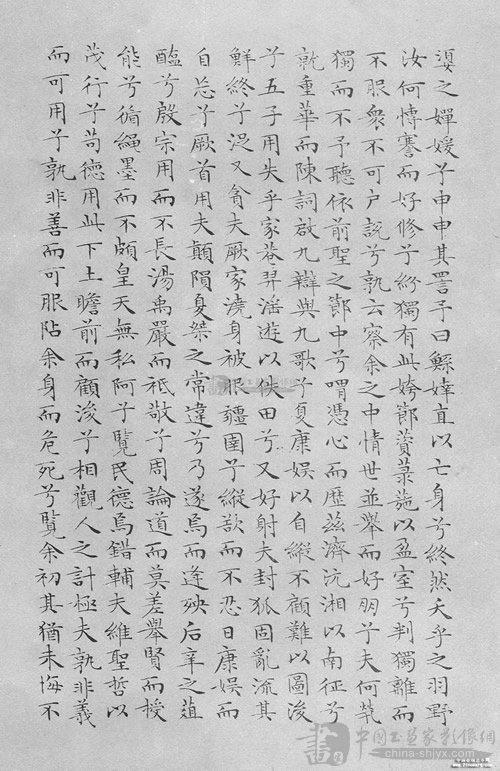 媭之嬋媛兮申申其詈予曰鯀婞直以亡身兮終然夭乎之羽野
汝何博謇而好修兮紛獨有此姱節薋菉葹以盈室兮判獨離而
不服衆不可户說兮孰云察余之中情世並舉而好朋兮夫何煢
獨而不予聽依前聖之節中兮喟憑心而歷茲濟沅湘以南征兮
就重華而陳詞啟九辯與九歌兮夏康娛以自縱不顧難以圖後
兮五子用失乎家巷羿淫遊以佚田兮又好射夫封狐固亂流其
鮮終兮浞又貪夫厥家澆身被服彊圉兮縱欲而不忍日康娛而
自忘兮厥首用夫顛隕夏桀之常違兮乃遂焉而逢殃后辛之菹
醢兮殷宗用而不長湯禹嚴而祗敬兮周論道而莫差舉賢而授
能兮循繩墨而不頗皇天無私阿兮覽民德焉錯輔夫維聖哲以
茂行兮苟德用此下土瞻前而顧後兮相觀人之計極夫孰非義
而可用兮孰非善而可服阽余身而危死兮覽余初其猶未悔不
中国书画家影像網
china-shjyx.com